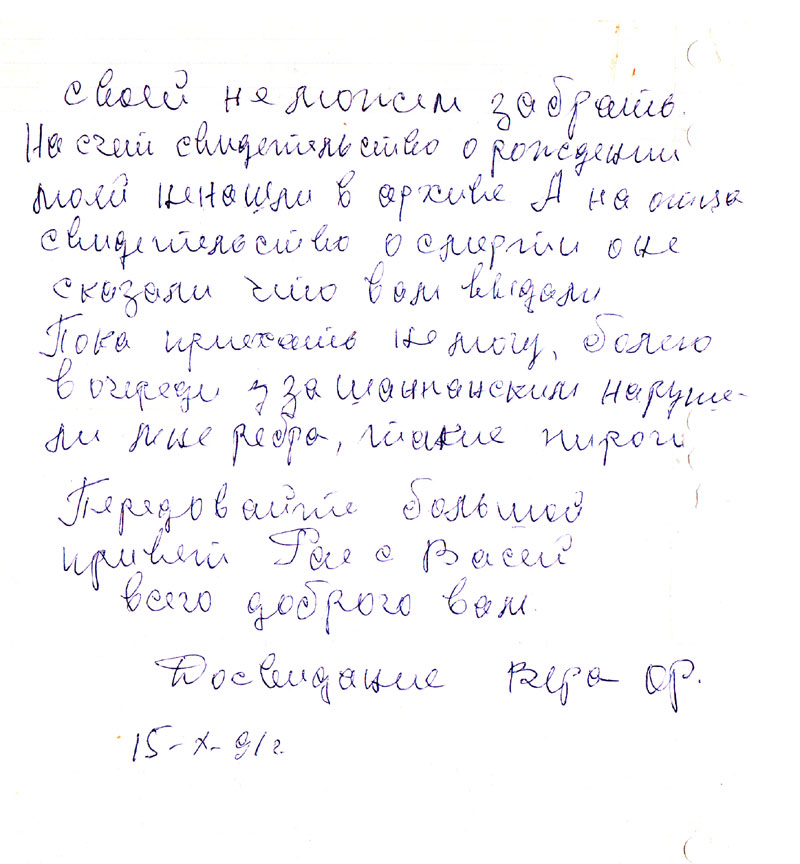 своей не можем забрать.
На счет свидетельство о рождении
моей ненашли в архиве А на отца
свидетельство о смерти они
сказали что вам выдали
Пока приехать не могу, болею
в очереди за шампанским наруше-
ли мне ребра, такие пироги
Передовайте большой
привет Рае с Васей
всего доброго вам.
Досвидание Вера ОР.
15-X-91г